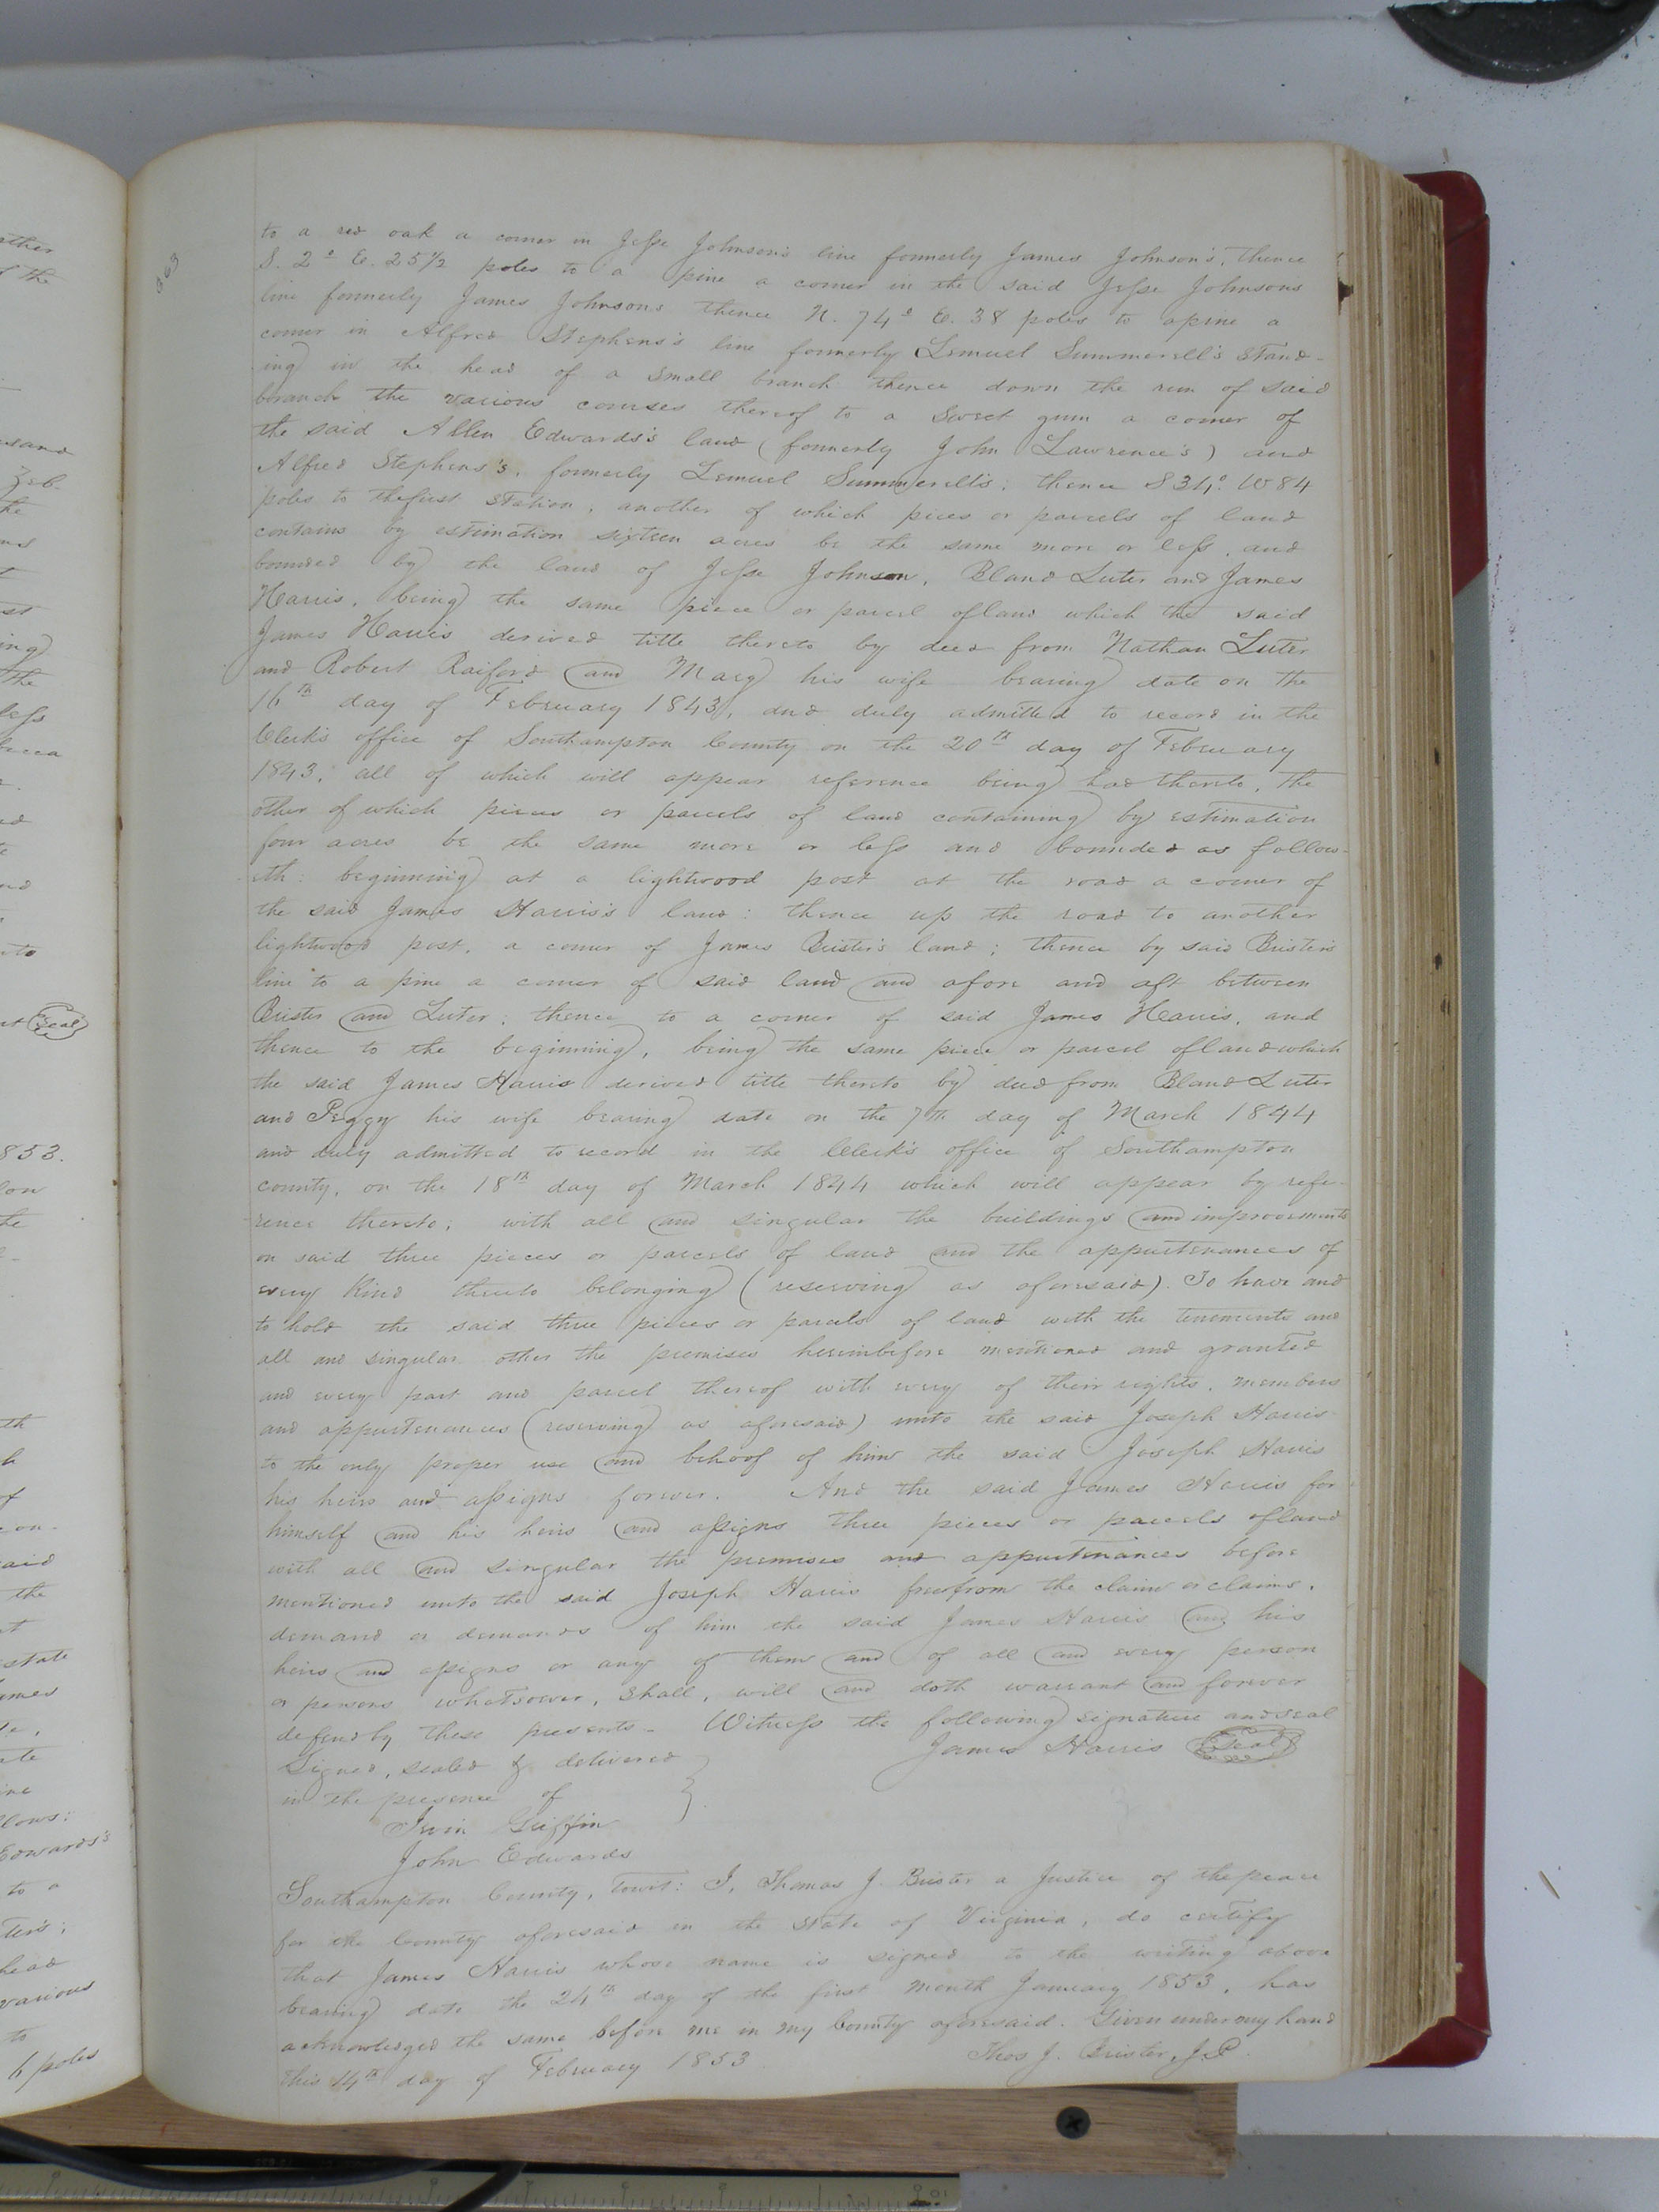 263
to a red oak a corner in Jesse Johnson's line formerly James Johnson's, thence
S. 2° E. 25 1/2 poles to a pine a corner in the said Jesse Johnsons
line formerly James Johnsons thence N. 74° E. 38 poles to a pine a
corner in Alfred Stephens's line formerly Lemuel Summerell's stand-
ing in the head of a small branch thence down the run of said
branch the various courses thereof to a sweet gum a corner of
the said Allen Edwards's land (formerly John Lawrence's) and
Alfred Stephens's, formerly Lemuel Summerell's; thence S 34° W 84
poles to the first station, another of which pices or parcels of land
contains by estimation sixteen acres be the same more or less, and
bounded by the land of Jesse Johnson, Bland Luter and James
Harris, being the same piece or parcel of land which the said
James Harris derived title thereto by deed from Nathan Luter
and Robert Raiford and Mary his wife bearing date on the
16th day of February 1843, and duly admitted to record in the
Clerk's office of Southampton County on the 20th day of February
1843, all of which will appear reference being had thereto, the
other of which pieces or parcels of land containing by estimation
four acres be the same more or less and bounded as follow-
eth: beginning at a lightwood post at the road a corner of
the said James Harris's land: thence up the road to another
lightwood post, a corner of James Brister's land; thence by said Brister's
line to a pine a corner of said land and afore and aft between
Brister and Luter, thence to a corner of said James Harris, and
thence to the beginning, being the same piece or parcel of land which
the said James Harris derived title thereto by deed from Bland Luter
and Peggy his wife bearing date on the 7th day of March 1844
and duly admitted to record in the Clerk's office of Southampton
county, on the 18th day of March 1844 which will appear by refe-
rence thereto; with all and singular the buildings and improvements
on said three pieces or parcels of land and the appurtenances of
every kind thereto belonging (reserving as aforesaid). To have and
to hold the said three pieces or parcels of land with the tenements and
all and singular other the premises hereinbefore mentioned and granted
and every part and parcel thereof with every of their rights, members
and appurtenances (reserving as aforesaid) unto the said Joseph Harris
to the only proper use and behoof of him the said Joseph Harris
his heirs and assigns forever. And the said James Harris for
himself and his heirs and assigns three pieces or parcels of land
with all and singular the premises and appurtenances before
mentioned unto the said Joseph Harris free from the claim or claims,
demand or demands of him the said James Harris and his
heirs and assigns or any of them and of all and every person
or persons whatsoever, shall, will and doth warrant and forever
defend by these presents. Witness the following signature and seal
Signed, sealed & delivered James Harris Seal
in the presence of
Irvin Griffin
John Edwards
Southampton County, towit: I, Thomas J. Brister a Justice of the peace
for the County aforesaid in the State of Virginia, do certify
that James Harris whose name is signed to the writing above
bearing date the 24th day of the first month January 1853, has
acknowledged the same before me in my County aforesaid. Given under my hand
this 14th day of February 1853 Thos J. Brister, J.P.